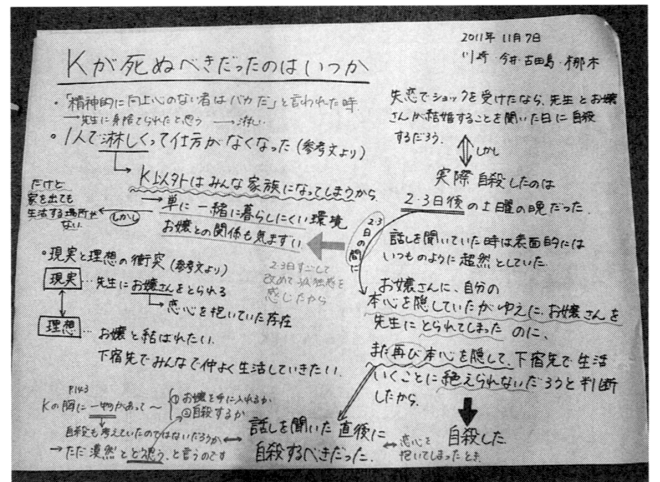 2011年 11月7日
川崎 今井・古田島・梛木
Kが死ぬべきだったのはいつか
・「精神的に向上心のない者はバカだ」と言われた時
→先生に見捨てられたと思う →淋しい
・1人で淋しくって仕方がなくなった(参考文より)
K以外はみんな家族になってしまうから
→単に一緒に暮らしにくい環境
お嬢との関係も気まずい
しかし
だけど
家を出ても
生活する場所が
ない
2・3日すごして
改めて孤独感を
感じたから
・現実と理想の衝突(参考文より)
現実…先生にお嬢さんをとられる
→恋心を抱いていた存在
理想…お嬢と結ばれたい。
下宿先でみんなで仲よく生活していきたい。
P.143
Kの胸に一物があって〜
①お嬢を手に入れるか
②自殺するか
自殺も考えていたのではないだろうか
→ただ漠然とと思う、と言うのです
失恋でショックを受けたなら、先生とお嬢
さんが結婚することを聞いた日に自殺
するだろう。
しかし
実際自殺したのは
2・3日後の土曜の晩だった。
2・3日の間に
話しを聞いていた時は表面的には
いつものように超然としていた。
お嬢さんに、自分の
本心を隠していたがゆえに、お嬢さんを
先生にとられてしまったのに、
また再び本心を隠して、下宿先で生活
いくことに絶えられないだろうと判断
したから。
自殺した
恋心を
抱いてしまったとき
話しを聞いた直後に
自殺するべきだった。